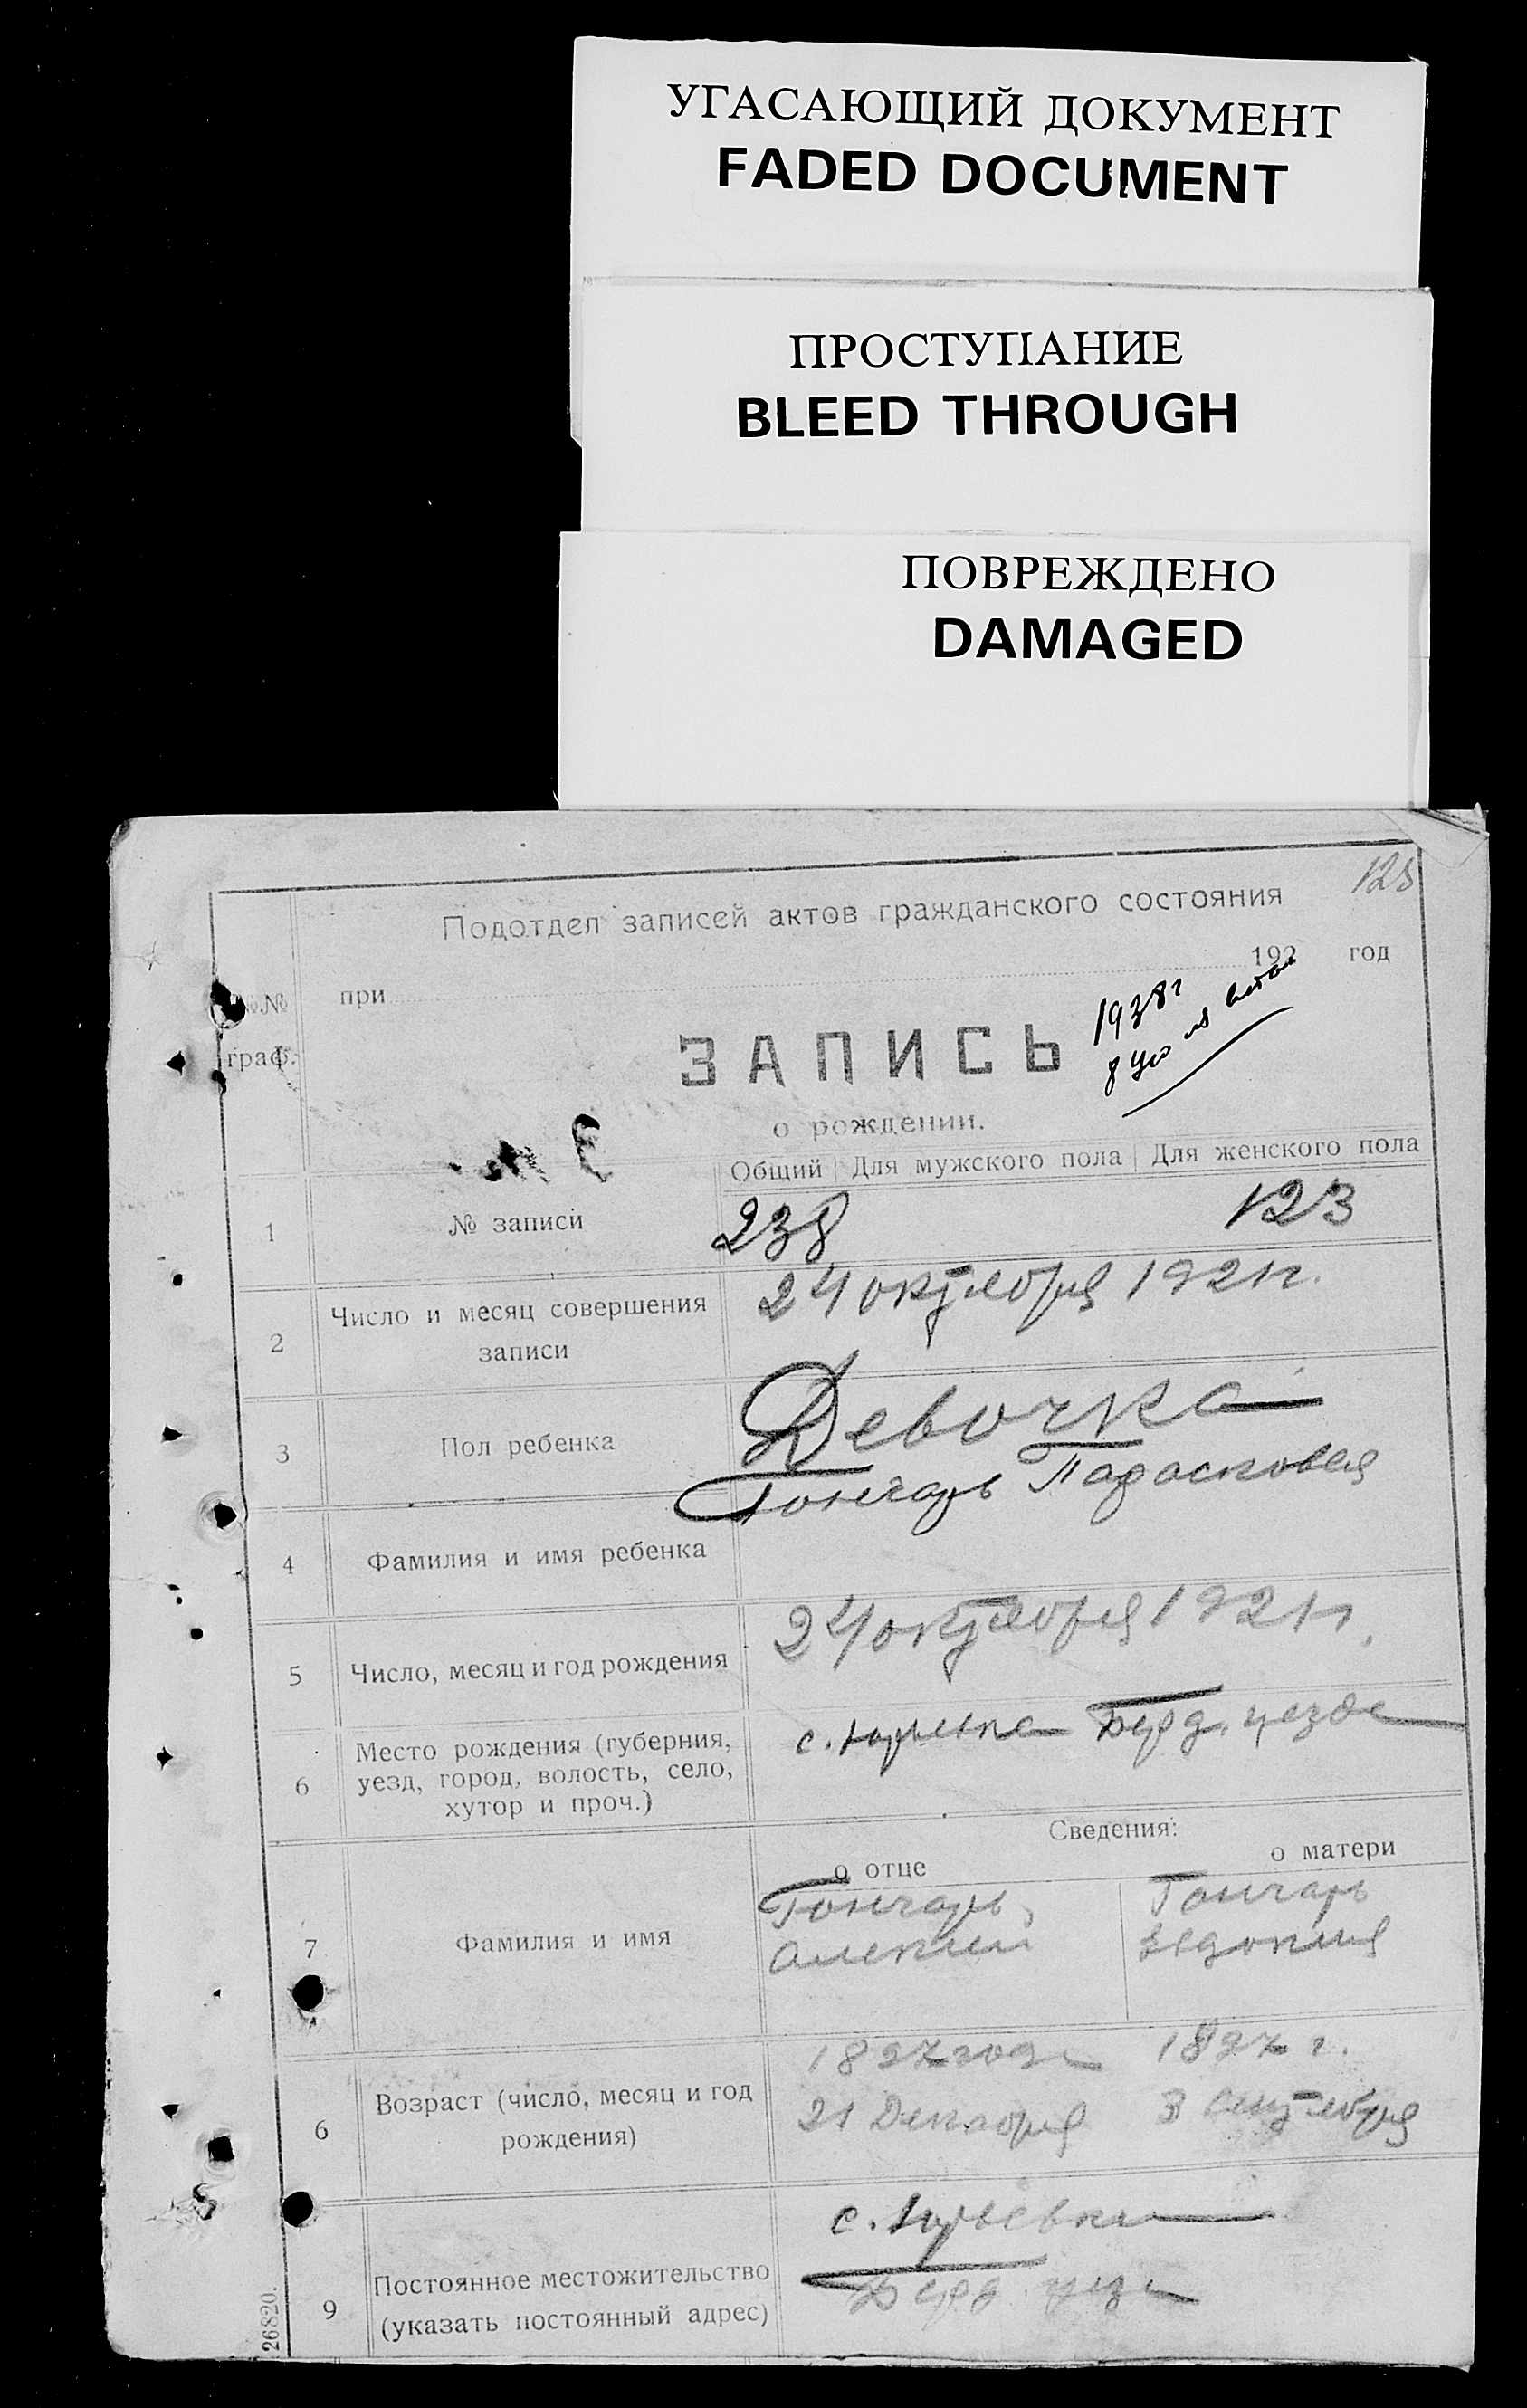 УГАСАЮЩИЙ ДОКУМЕНТ
FADED DOCUMENT
ПРОСТУПАНИЕ
BLEED THROUGH
ПОВРЕЖДЕНО
DAMAGED
Подотдел записей актов гражданского состояния
при 192 год
№№
граф.
1938г
ЗАПИСЬ
о рождении.
Общий Для мужского пола Для женского пола
1 № записи 238 123
2 Число и месяц совершения 24 октября 1921г.
записи
3 Пол ребенка Девочка
Гончарь Парасковея
4 Фамилия и имя ребенка
5 Число, месяц и год рождения 24 октября 1921г.
6 Место рождения (губерния, с. Юрьевка Берд. уезда
уезд, город, волость, село,
хутор и проч.)
Сведения:
о отце о матери
7 Фамилия и имя Гончарь Гончарь
Алексей Евдокия
1897 года 1897 г.
6 Возраст (число, месяц и год 21 Декабря 3 Сентября
рождения)
с. Юрьевка
9 Постоянное местожительство Берд. уезд
(указать постоянный адрес)
26820.